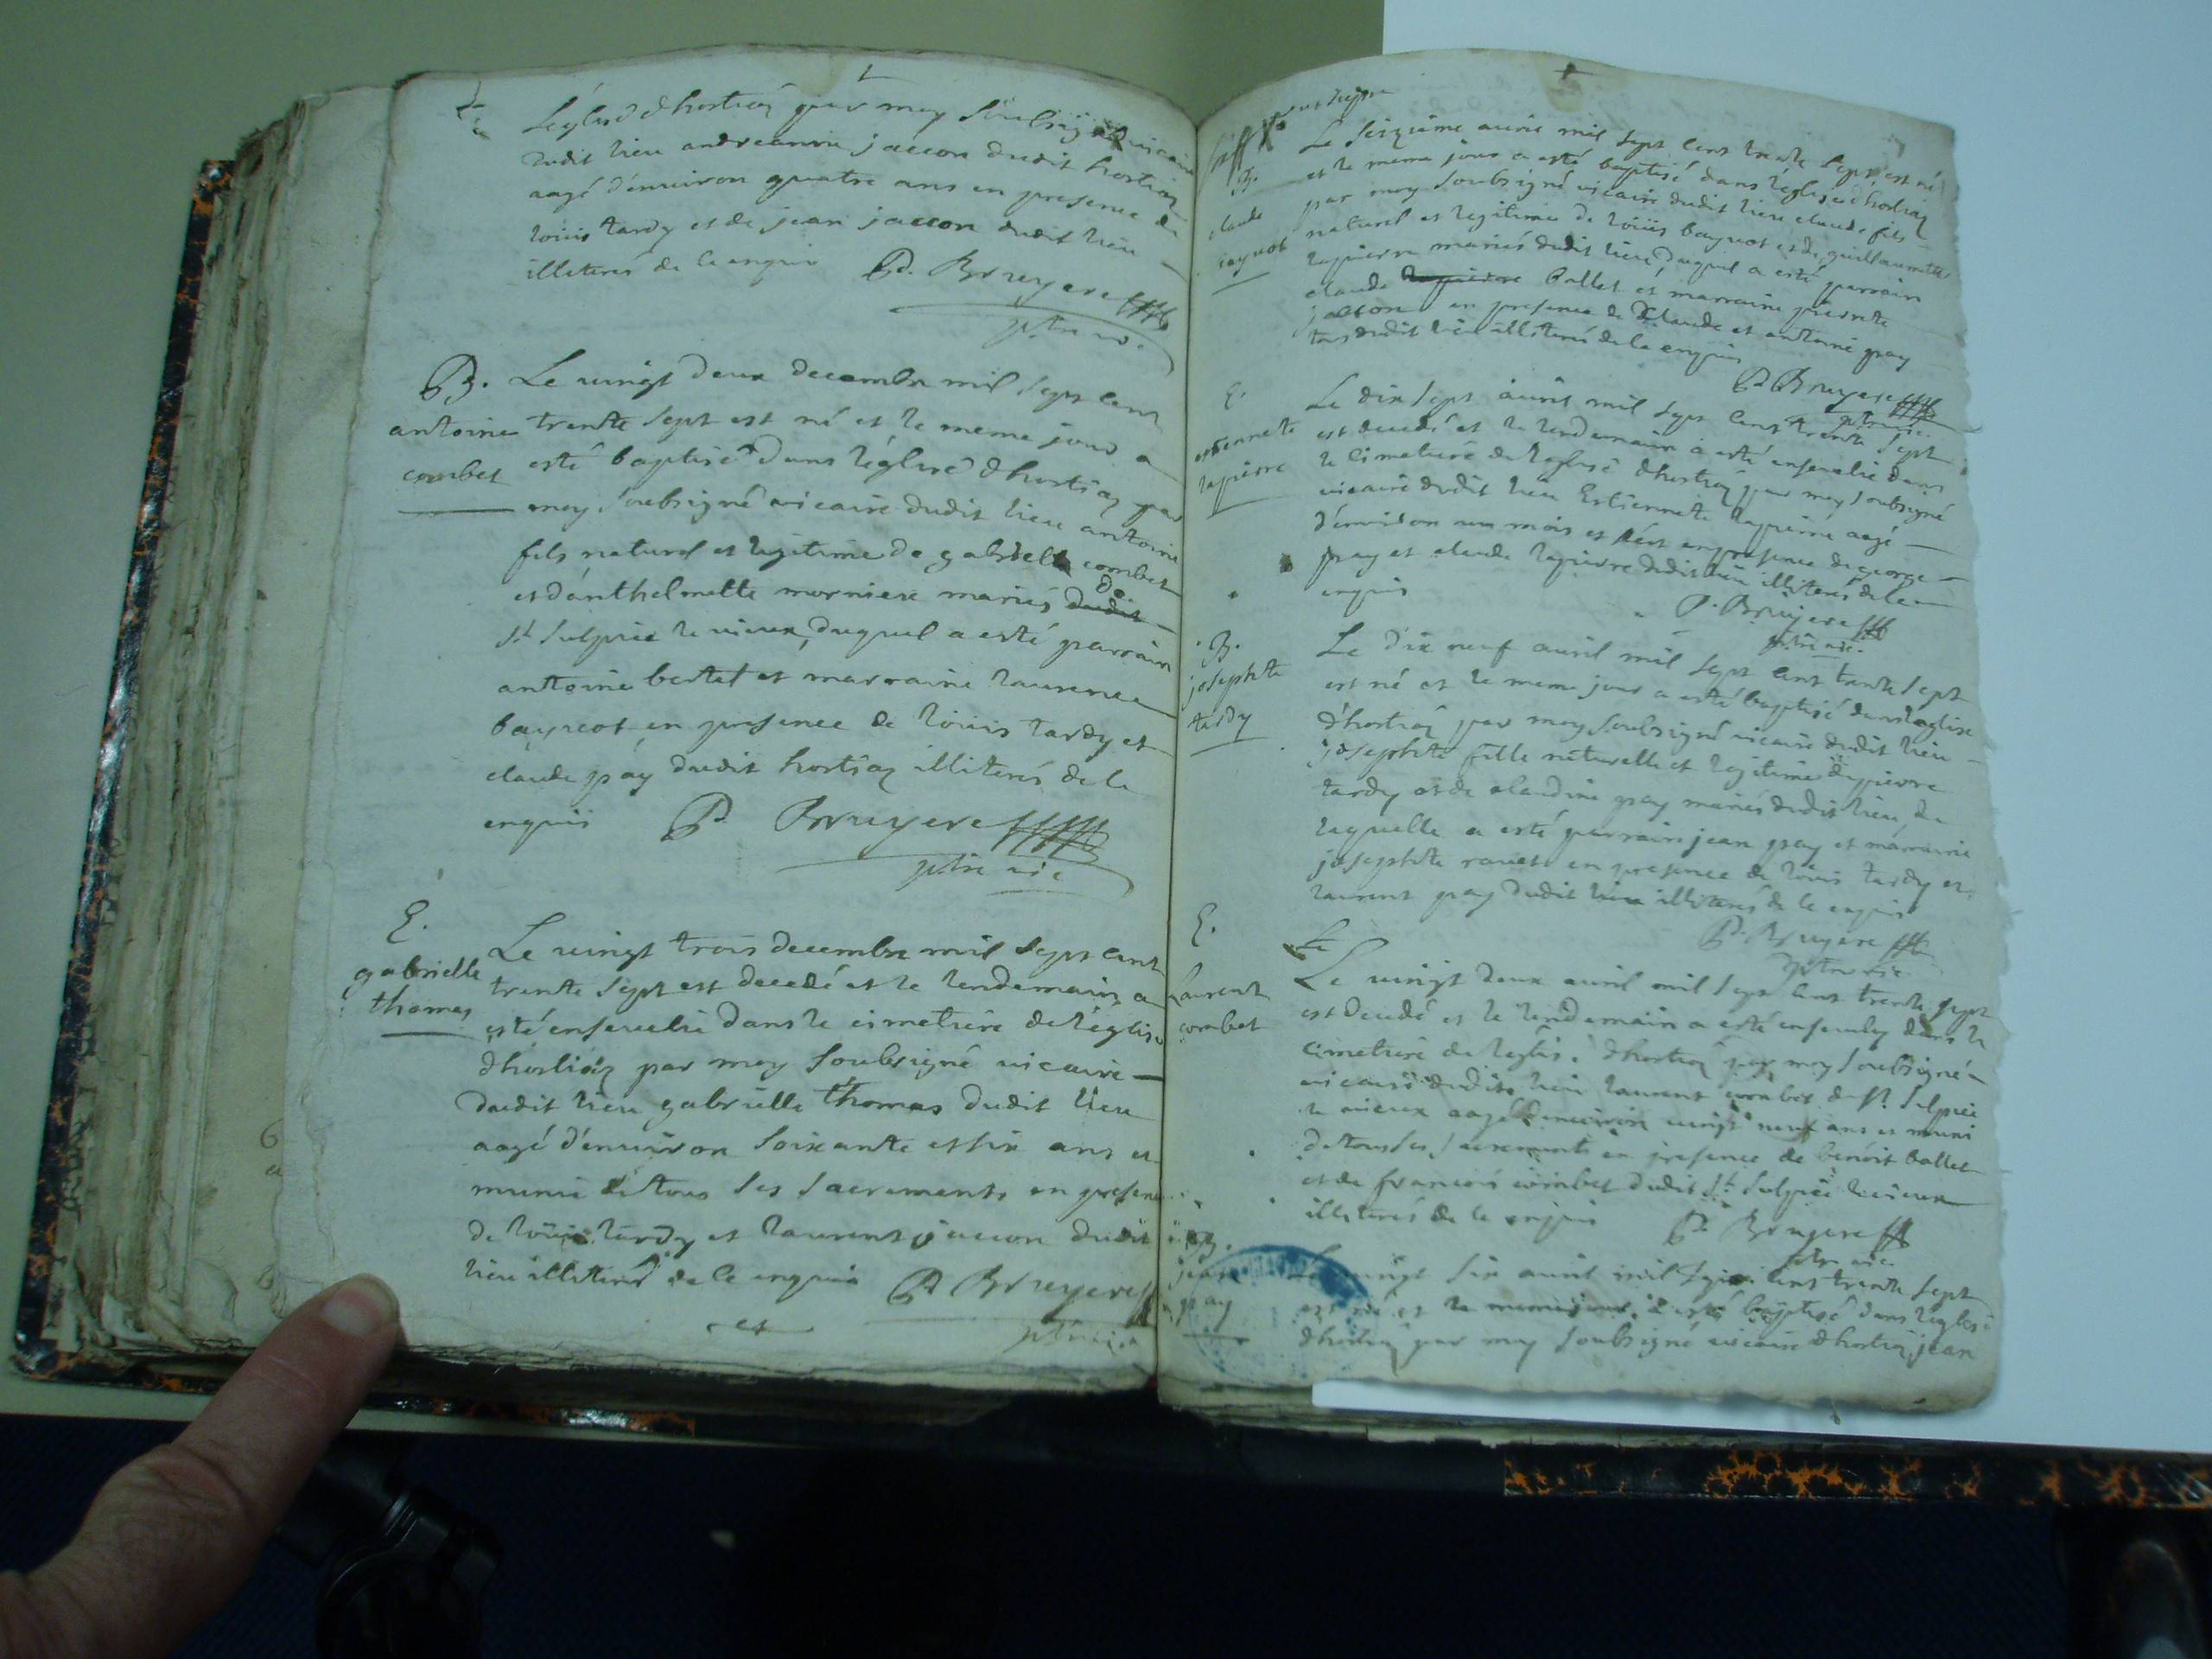 L'église d'hostiaz par moy soubsigné vicaire
dudit lieu andreanne jaccon dudit hostiaz
aagé d'environ quatre ans en presence de
loüis tardy et de jean jaccon dudit lieu
illiterés de ce enquis P. Bruyere
ptre vic.
B. Le vingt deux decembre mil sept cent
antoine trente sept est né et le meme jour a
combet esté baptisé dans l'église d'hostiaz par
moy soubsigné vicaire dudit lieu antoine
fils naturel et legitime de gabriell combet
de
et d'anthelmette morniere mariés dudit
St Sulpice le vieux, duquel a esté parrain
antoine bertet et marraine laurence
bayrcot en presence de loüis tardy et
claude pay dudit hostiaz illiterés de ce
enquis P. Bruyere
ptre vic
E.
gabrielle Le vingt trois decembre mil sept cent
thomas trente sept est decedé et le lendemain a
esté ensevelie dans le cimetiere de l'église
d'hostiaz par moy soubsigné vicaire
dudit lieu gabrielle thomas dudit lieu
aagé d'environ soixante et six ans et
munie de tous ses sacrements en presence
de loüis tardy et laurent jaccon dudit
lieu illiterés de ce enquis P. Bruyere
ptre vic.
Le seizieme avril mil sept cent trente sept est né
B. et le meme jour a esté baptisé dans l'église d'hostiaz
claude par moy soubsigné vicaire dudit lieu claude fils
naturel et legitime de loüis bayrcot et de guillaumette
lapierre mariés dudit lieu, duquel a esté parrain
claude lapierre ballet et marraine pierrete
jaccon en presence de claude et antoine pay
tous dudit lieu illiterés de ce enquis
P. Bruyere
ptre vic.
E. Le dix sept avril mil sept cent trente sept
estiennete est decedé et le lendemain a esté ensevelie dans
lapierre le cimetiere de l'eglise d'hostiaz par moy soubsigné
vicaire dudit lieu Estiennete lapierre aagé
d'environ un mois et en presence de george
pay et claude lapierre dudit lieu illiterés de ce
enquis P. Bruyere
ptre vic.
B. Le dix neuf avril mil sept cent trente sept
josephte est né et le meme jour a esté baptisé dans l'eglise
tardy d'hostiaz par moy soubsigné vicaire dudit lieu
josephte fille naturelle et legitime de pierre
tardy et de claudine pay mariés dudit lieu, de
laquelle a esté parrain jean pay et marraine
josephte ravet en presence de loüis tardy et
laurent pay dudit lieu illiterés de ce enquis
P. Bruyere
ptre vic
E. Le
Laurent Le vingt deux avril mil sept cent trente sept
combet est decedé et le lendemain a esté ensevely dans le
cimetiere de l'eglise d'hostiaz par moy soubsigné
vicaire dudit lieu laurent combet de St Sulpice
le vieux aagé d'environ vingt neuf ans et muni
de tous ses sacrements en presence de benoit ballet
et de francois combet dudit St Sulpice le vieux
illiterés de ce enquis P. Bruyere
ptre vic.
B. Le vingt six avril mil sept cent trente sept
jean est né et le meme jour a esté baptisé dans l'eglise
pay d'hostiaz par moy soubsigné vicaire d'hostiaz, jean